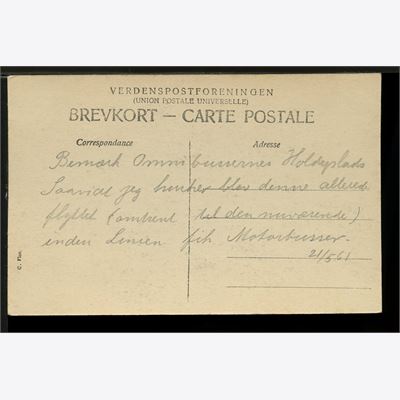 VERDENSPOSTFORENINGEN
(UNION POSTALE UNIVERSELLE)
BREVKORT — CARTE POSTALE
Correspondance
Adresse
Bemærk Omnibussernes Holdeplads
Saavidt jeg husker blev denne allerede
flyttet (omtrent til den nuværende)
inden Linien fik Motorbusser.
21/5 61
C. Flor.